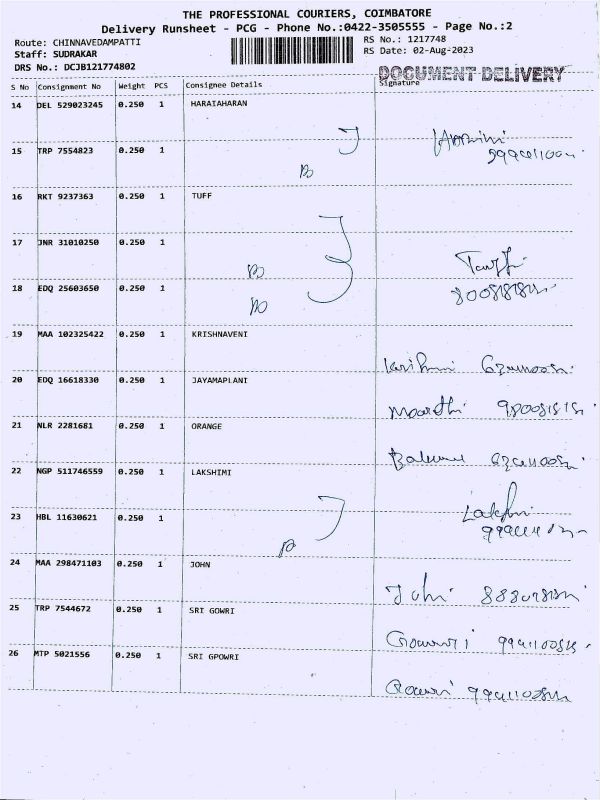 THE PROFESSIONAL COURIERS, COIMBATORE
Delivery Runsheet - PCG - Phone No.:0422-3505555 - Page No.:2
Route: CHINNAVEDAMPATTI
RS No.: 1217748
Staff: SUDRAKAR
RS Date: 02-Aug-2023
DRS No.: DCJB121774802
DOCUMENT DELIVERY
S No Consignment No Weight PCS Consignee Details Signature
14 DEL 529023245 0.250 1 HARAIAHARAN
15 TRP 7554823 0.250 1
16 RKT 9237363 0.250 1 TUFF
17 JNR 31010250 0.250 1
18 EDQ 25603650 0.250 1
19 MAA 102325422 0.250 1 KRISHNAVENI
20 EDQ 16618330 0.250 1 JAYAMAPLANI
Moorthi
21 NLR 2281681 0.250 1 ORANGE
22 NGP 511746559 0.250 1 LAKSHIMI
Lakshmi
23 HBL 11630621 0.250 1
24 MAA 298471103 0.250 1 JOHN
John
25 TRP 7544672 0.250 1 SRI GOWRI
Gowri
26 MTP 5021556 0.250 1 SRI GPOWRI
Gowri